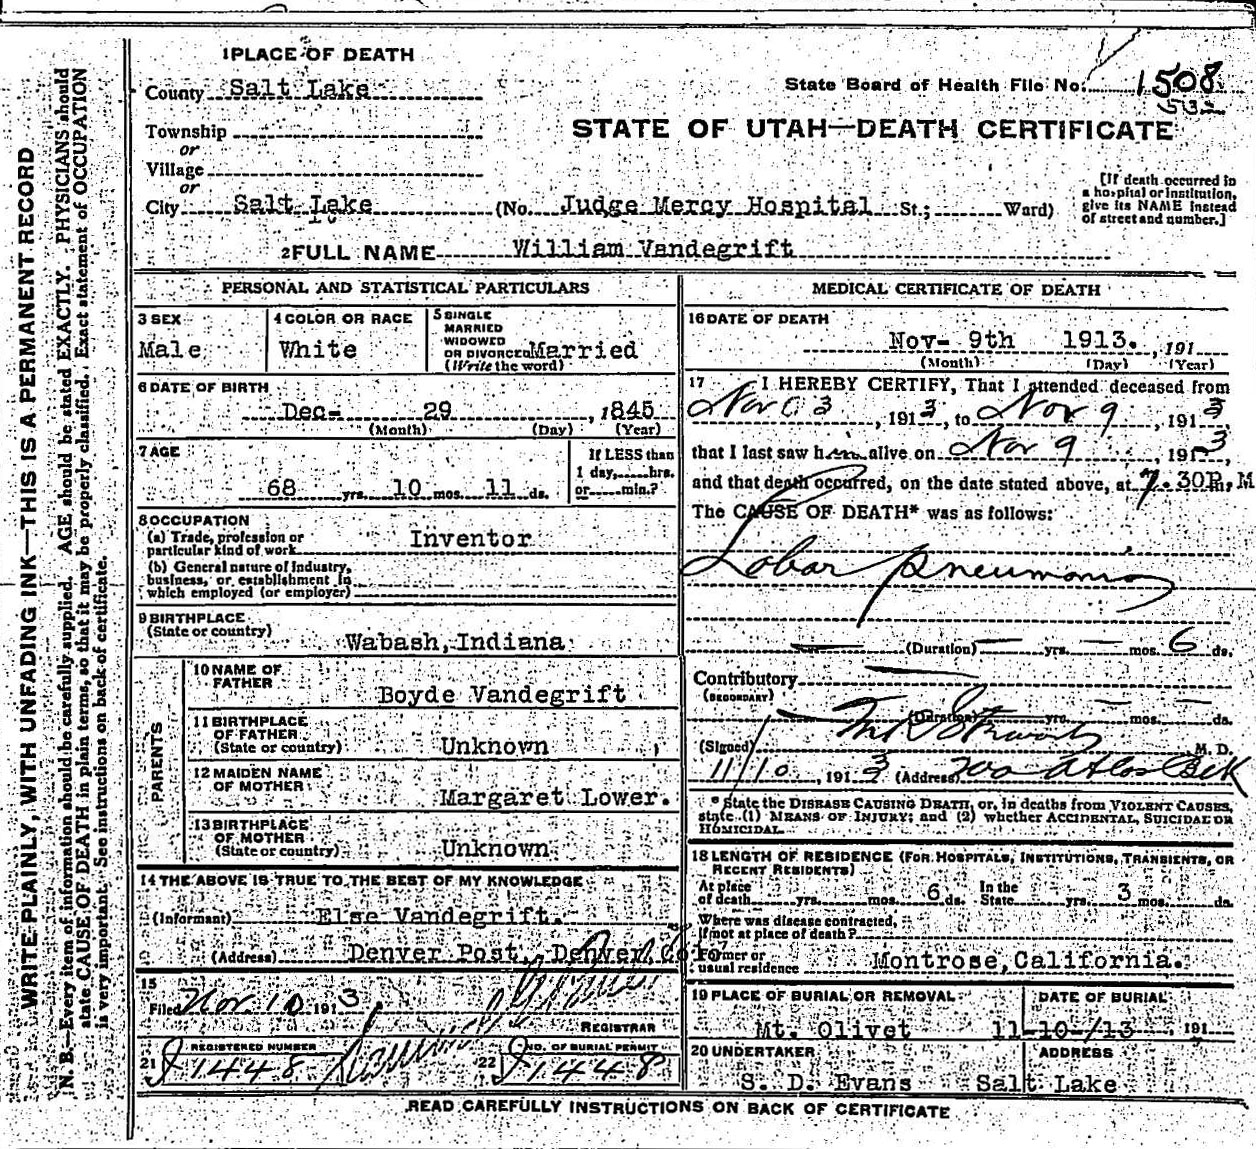 WRITE PLAINLY, WITH UNFADING INK—THIS IS A PERMANENT RECORD
N. B.—Every item of information should be carefully supplied. AGE should be stated EXACTLY. PHYSICIANS should
state CAUSE OF DEATH in plain terms, so that it may be properly classified. Exact statement of OCCUPATION
is very important. See instructions on back of certificate.
1 PLACE OF DEATH
County Salt Lake
State Board of Health File No. 1508
532
Township
STATE OF UTAH—DEATH CERTIFICATE
or
Village
or
City Salt Lake (No. Judge Mercy Hospital St.; Ward)
[If death occurred in
a hospital or institution,
give its NAME instead
of street and number.]
2 FULL NAME William Vandegrift
PERSONAL AND STATISTICAL PARTICULARS
3 SEX
Male
4 COLOR OR RACE
White
5 SINGLE
MARRIED
WIDOWED
OR DIVORCED Married
(Write the word)
6 DATE OF BIRTH
Dec- 29, 1845
(Month) (Day) (Year)
7 AGE
68 yrs. 10 mos. 11 ds.
If LESS than
1 day, hrs.
or min.?
8 OCCUPATION
(a) Trade, profession or
particular kind of work Inventor
(b) General nature of Industry,
business, or establishment in
which employed (or employer)
9 BIRTHPLACE
(State or country)
Wabash, Indiana
PARENTS
10 NAME OF
FATHER
Boyde Vandegrift
11 BIRTHPLACE
OF FATHER
(State or country) Unknown
12 MAIDEN NAME
OF MOTHER
Margaret Lower.
13 BIRTHPLACE
OF MOTHER
(State or country) Unknown
14 THE ABOVE IS TRUE TO THE BEST OF MY KNOWLEDGE
(Informant) Else Vandegrift.
(Address) Denver Post, Denver, Colo
15
Filed Nov. 10 1913.
REGISTRAR
21 REGISTERED NUMBER
1448
22 NO. OF BURIAL PERMIT
1448
MEDICAL CERTIFICATE OF DEATH
16 DATE OF DEATH
Nov- 9th 1913. , 191
(Month) (Day) (Year)
17 I HEREBY CERTIFY, That I attended deceased from
Nov 3, 1913, to Nov 9, 1913
that I last saw him alive on Nov 9, 1913,
and that death occurred, on the date stated above, at 7.30P. M
The CAUSE OF DEATH* was as follows:
Lobar Pneumonia
(Duration) — yrs. — mos. 6 ds.
Contributory
(SECONDARY)
(Duration) yrs. — mos. — ds.
(Signed) M. D.
11/10, 1913 (Address) 700 Atlas
* State the DISEASE CAUSING DEATH, or, in deaths from VIOLENT CAUSES,
state (1) MEANS OF INJURY; and (2) whether ACCIDENTAL, SUICIDAL OR
HOMICIDAL.
18 LENGTH OF RESIDENCE (FOR HOSPITALS, INSTITUTIONS, TRANSIENTS, OR
RECENT RESIDENTS)
At place
of death yrs. mos. 6 ds.
In the
State yrs. 3 mos. ds.
Where was disease contracted,
If not at place of death?
Former or
usual residence Montrose, California.
19 PLACE OF BURIAL OR REMOVAL
Mt. Olivet
DATE OF BURIAL
11-10-/13 191
20 UNDERTAKER
S. D. Evans
ADDRESS
Salt Lake
READ CAREFULLY INSTRUCTIONS ON BACK OF CERTIFICATE